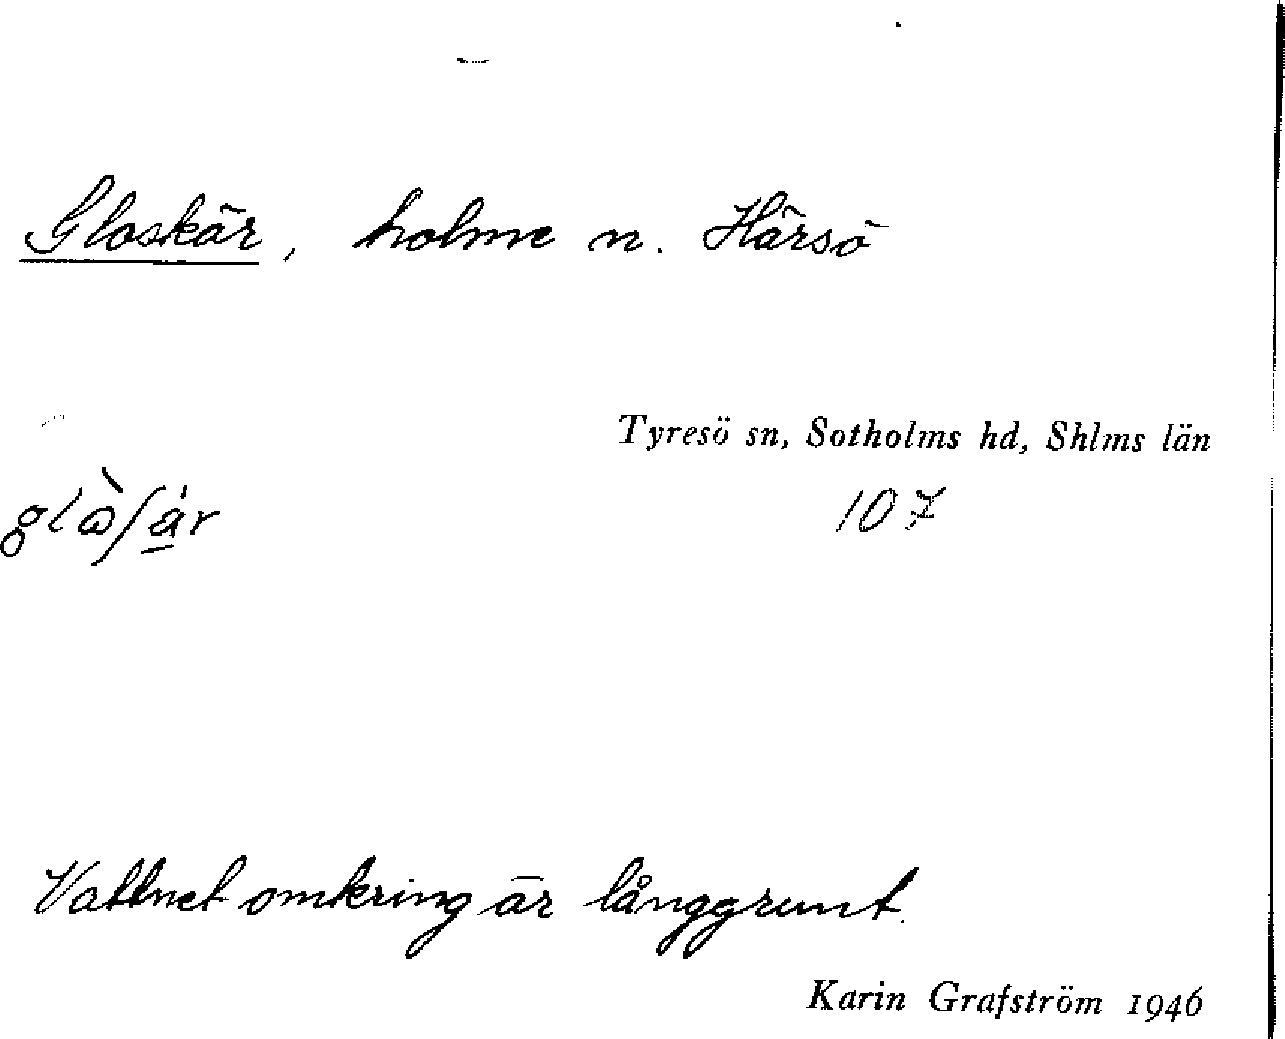 Gloskär, holme n. Härsö
Tyresö sn, Sotholms hd, Shlms län
107
Vattnet omkring är långgrunt.
Karin Grafström 1946